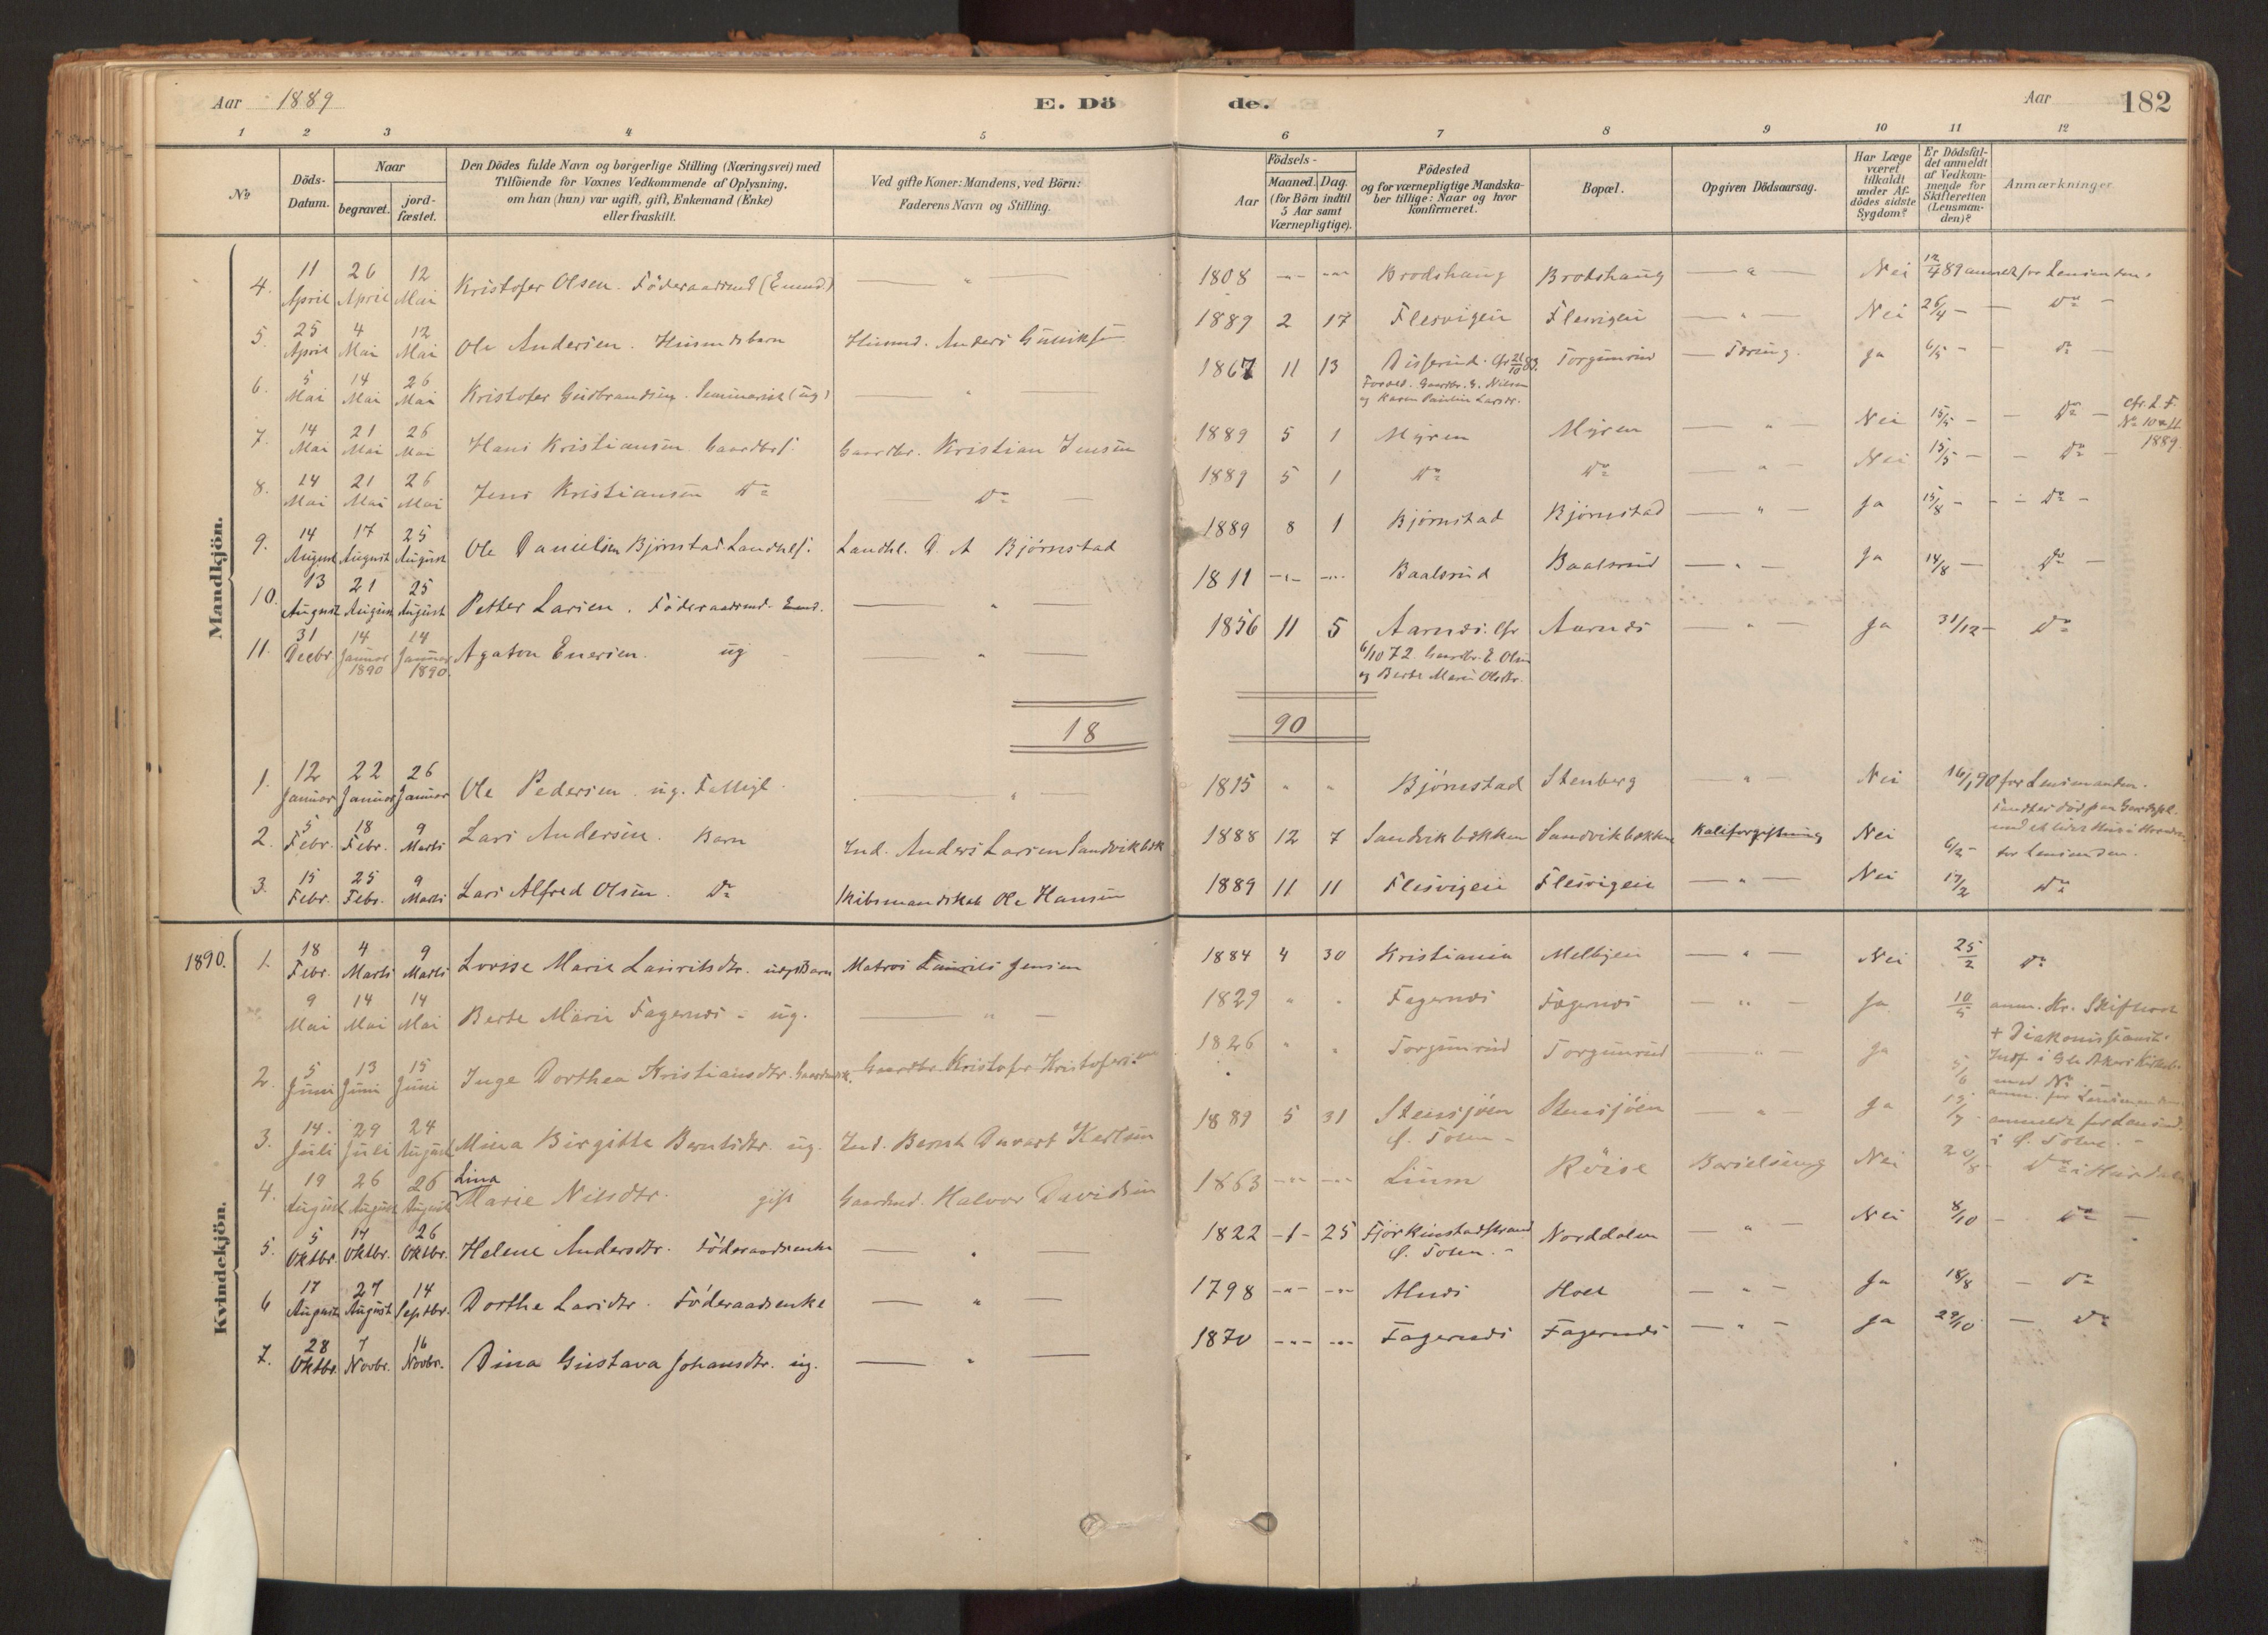 Aar 1889 E. Dö de. Aar 182
1 2 3 4 5 6 7 8 9 10 11 12
No
Döds-Datum.
Naar
begravet.
jord-fæstet.
Den Dödes fulde Navn og borgerlige Stilling (Næringsvei) med
Tilföiende for Voxnes Vedkommende af Oplysning,
om han (hun) var ugift, gift, Enkemand (Enke)
eller fraskilt.
Ved gifte Koner: Mandens, ved Börn:
Faderens Navn og Stilling.
Födsels-
Aar
Maaned. Dag.
(for Börn indtil
5 Aar samt
Værnepligtige).
Födested
og for værnepligtige Mandska-
ber tillige: Naar og hvor
konfirmeret.
Bopæl.
Opgiven Dödsaarsag.
Har Læge
været
tilkaldt
under Af-
dödes sidste
Sygdom?
Er Dödsfal-
det anmeldt
af Vedkom-
mende for
Skifteretten
(Lensman-
den)?
Anmærkninger.
Mandkjön.
4. 11 April 26 April 12 Mai Kristofer Olsen. Föderaadsmd (Enmd.) — " — 1808 Brodshaug Brodshaug — " — Nei 12/4 89 anmeldt for Lensmanden.
5. 25 April 4 Mai 12 Mai Ole Andersen. Husmdsbarn Husmd. Anders 1889 2 17 Flesvigen Flesvigen — " — Nei 26/4 — Do —
6. 5 Mai 14 Mai 26 Mai Kristofer Gudbrandsen. Seminarist (ug) — " — 1867 11 13 Disserud. cfr 21/10 83. Torgunrud — Tæring. Ja 6/5 — Do —
Foræld. Gaardbr. G. Nilsen
og Karen Pauline Larsdr.
7. 14 Mai 21 Mai 26 Mai Hans Kristiansen Gaardbrs. Gaardbr. Kristian Jensen 1889 5 1 Myren Myren — " — Nei 15/5 — Do — cfr. L. F.
No 10 & 11
1889.
8. 14 Mai 21 Mai 26 Mai Jens Kristiansen Do — Do — 1889 5 1 Do Do — " — Nei 15/5 — Do —
9. 14 August 17 August 25 August Ole Danielsen Bjørnstad Landhls. Landhl. D. A Bjørnstad 1889 8 1 Bjørnstad Bjørnstad — " — Ja 15/8 — Do —
10. 13 August 21 August 25 August Petter Larsen. Föderaadsmd. Enmd. — " — 1811 Baalsrud Baalsrud — " — Ja 14/8 — Do —
11. 31 Decbr. 14 Januar 1890 14 Januar 1890. Agaton Enersen. ug — " — 1856 11 5 Aarnæs. cfr Aarnæs — " — Ja 31/12 — Do
6/10 72. Gaardbr. E. Olsen
og Berte Marie Olsdtr.
18 90
1. 12 Januar 22 Januar 26 Januar Ole Pedersen. ug. Fattigl. — " — 1815 " " Bjørnstad Stenberg — " — Nei 16/1 90 for Lensmanden.
2. 5 Febr. 18 Febr. 9 Marts Lars Andersen. Barn Ind. Anders Larsen Sandvikbæk 1888 12 7 Sandvikbækken Sandvikbækken Kaliforgiftning Nei 6/2 - for Lensmden.
3. 15 Febr. 25 Febr. 9 Marts Lars Alfred Olsen. Do Skibsmandskab Ole Hansen 1889 11 11 Flesvigen Flesvigen — " — Nei 17/2 Do
Kvindekjön.
1890. 1. 18 Febr. 4 Marts 9 Marts Lovise Marie Lauritsdtr. Barn Matros Laurits Jensen 1884 4 30 Kristiania Melbyen — " — Nei 25/2 Do
9 Mai 14 Mai 14 Mai Berte Marie Fagernæs - ug. — " — 1829 " " Fagernæs Fagernæs — " — Ja 10/5 anm.
+ Diakonissanst.
2. 5 Juni 13 Juni 15 Juni Inge Dorthea Kristiansdtr. Gaardbr. Kristofer 1826 " " Torgunrud Torgunrud — " — Ja 5/6
anm. for Lensmanden
3. 14. Juli 29 Juli 24 August Mina Birgitte Berntsdtr. ug. Ind. Bernt Karlsen 1889 5 31 Stensjöen Stensjöen — " — Ja anmeldt for Lensmd.
Ö. Toten - i Ö. Toten. -
4. 19 August 26 August 26 August Lina Marie Nilsdtr. gift Gaardmd. Halvor Davidsen 1863 Linm Röise Barselseng Nei 20/8 - Do i Hurdalen
5. 5 Oktbr. 14 Oktbr. 26 Oktbr. Helene Andersdtr. Föderaadsenke — " — 1822 - 1 - 25 Norddalen — " — Nei 8/10 - Do —
Ö. Toten. -
6 17 August 27 August 14 Septbr. Dorthe Larsdtr. Föderaadsenke — " — 1798 Alnæs Hoel — " — Ja 18/8 — Do
7. 28 Oktbr. 7 Novbr. 16 Novbr. Dina Gustava Johansdtr. ug. — " — 1870 Fagernæs Fagernæs — " — Ja 29/10 — Do